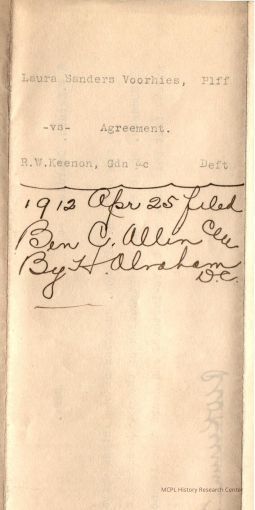 Laura Sanders Voorhies, Plff
-vs- Agreement.
R.W.Keenon, Gdn &c Deft
1912 Apr 25 filed
Ben C. Allen Clk
By H. Abraham
D.C.
MCPL History Research Center